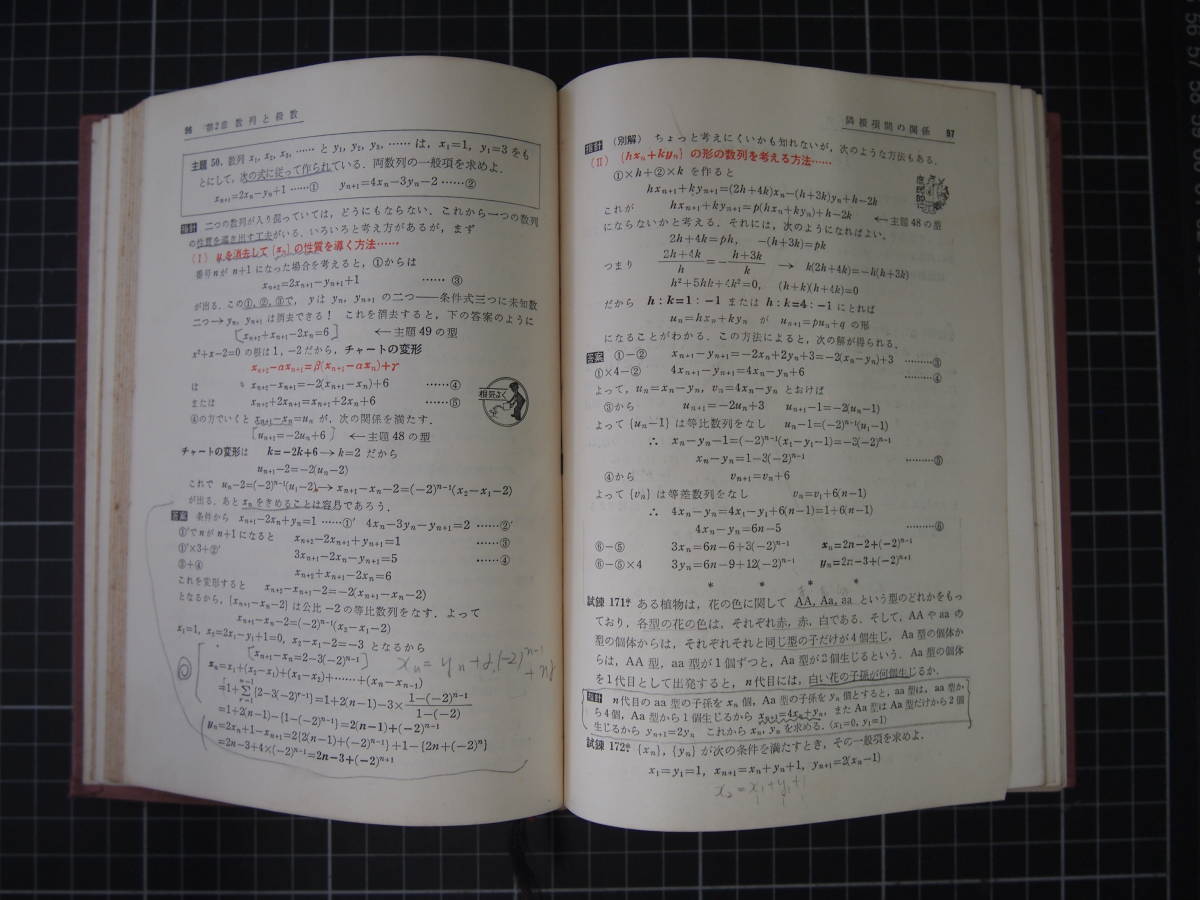 96 第2章 数列と級数
主題 50. 数列 x₁, x₂, x₃, …… と y₁, y₂, y₃, …… は, x₁=1, y₁=3 をも
とにして, 次の式に従って作られている. 両数列の一般項を求めよ.
xₙ₊₁=2xₙ−yₙ+1 ……① yₙ₊₁=4xₙ−3yₙ−2 ……②
指針 二つの数列が入り混っていては, どうにもならない. これから一つの数列
の性質を導き出す工夫がいる. いろいろと考え方があるが, まず
(I) yₙを消去して {xₙ} の性質を導く方法……
番号 n が n+1 になった場合を考えると, ①からは
xₙ₊₂=2xₙ₊₁−yₙ₊₁+1 …… ③
が出る. この①, ②, ③で, y は yₙ, yₙ₊₁ の二つ——条件式三つに未知数
二つ→yₙ, yₙ₊₁ は消去できる! これを消去すると, 下の答案のように
[xₙ₊₂+xₙ₊₁−2xₙ=6] ←主題 49 の型
x²+x−2=0 の根は 1, −2 だから, チャートの変形
xₙ₊₂−αxₙ₊₁=β(xₙ₊₁−αxₙ)+γ
は xₙ₊₂−xₙ₊₁=−2(xₙ₊₁−xₙ)+6 ……④
または xₙ₊₂+2xₙ₊₁=xₙ₊₁+2xₙ+6 ……⑤
根気よく
④の方でいくと xₙ₊₁−xₙ=uₙ が, 次の関係を満たす.
[uₙ₊₁=−2uₙ+6] ←主題 48 の型
チャートの変形は k=−2k+6 → k=2 だから
uₙ₊₁−2=−2(uₙ−2)
これで uₙ−2=(−2)ⁿ⁻¹(u₁−2) → xₙ₊₁−xₙ−2=(−2)ⁿ⁻¹(x₂−x₁−2)
が出る. あと xₙ をきめることは容易であろう.
答案 条件から xₙ₊₁−2xₙ+yₙ=1 ……①′ 4xₙ−3yₙ−yₙ₊₁=2 ……②′
①′で n が n+1 になると xₙ₊₂−2xₙ₊₁+yₙ₊₁=1 ……③
①′×3+②′ 3xₙ₊₁−2xₙ−yₙ₊₁=5 ……④
③+④ xₙ₊₂+xₙ₊₁−2xₙ=6
これを変形すると xₙ₊₂−xₙ₊₁−2=−2(xₙ₊₁−xₙ−2)
となるから, {xₙ₊₁−xₙ−2} は公比 −2 の等比数列をなす. よって
xₙ₊₁−xₙ−2=(−2)ⁿ⁻¹(x₂−x₁−2)
x₁=1, x₂=2x₁−y₁+1=0, x₂−x₁−2=−3 となるから
[xₙ₊₁−xₙ=2−3(−2)ⁿ⁻¹]
xₙ=x₁+(x₂−x₁)+(x₃−x₂)+……+(xₙ−xₙ₋₁)
=1+∑{2−3(−2)ʳ⁻¹}=1+2(n−1)−3×(1−(−2)ⁿ⁻¹)/(1−(−2))
=1+2(n−1)−{1−(−2)ⁿ⁻¹}=2(n−1)+(−2)ⁿ⁻¹
yₙ=2xₙ+1−xₙ₊₁=2{2(n−1)+(−2)ⁿ⁻¹}+1−{2n+(−2)ⁿ}
=2n−3+4×(−2)ⁿ⁻¹=2n−3+(−2)ⁿ⁺¹
隣接項間の関係 97
指針 (別解) ちょっと考えにくいかも知れないが, 次のような方法もある.
(II) {hxₙ+kyₙ} の形の数列を考える方法……
①×h+②×k を作ると
hxₙ₊₁+kyₙ₊₁=(2h+4k)xₙ−(h+3k)yₙ+h−2k
これが hxₙ₊₁+kyₙ₊₁=p(hxₙ+kyₙ)+h−2k
にならないかと考える. それには, 次のようになればよい. ←主題 48 の型
2h+4k=ph, −(h+3k)=pk
つまり (2h+4k)/h=−(h+3k)/k → k(2h+4k)=−h(h+3k)
h²+5hk+4k²=0, (h+k)(h+4k)=0
だから h:k=1:−1 または h:k=4:−1 にとれば
uₙ=hxₙ+kyₙ が uₙ₊₁=puₙ+q の形
になることがわかる. この方法によると, 次の解が得られる.
答案 ①−② xₙ₊₁−yₙ₊₁=−2xₙ+2yₙ+3=−2(xₙ−yₙ)+3 ………③
①×4−② 4xₙ₊₁−yₙ₊₁=4xₙ−yₙ+6 ………④
よって, uₙ=xₙ−yₙ, vₙ=4xₙ−yₙ とおけば
③から uₙ₊₁=−2uₙ+3 uₙ₊₁−1=−2(uₙ−1)
よって {uₙ−1} は等比数列をなし uₙ−1=(−2)ⁿ⁻¹(u₁−1)
∴ xₙ−yₙ−1=(−2)ⁿ⁻¹(x₁−y₁−1)=−3(−2)ⁿ⁻¹
xₙ−yₙ=1−3(−2)ⁿ⁻¹ ………⑤
④から vₙ₊₁=vₙ+6
よって {vₙ} は等差数列をなし vₙ=v₁+6(n−1)
∴ 4xₙ−yₙ=4x₁−y₁+6(n−1)=1+6(n−1)
4xₙ−yₙ=6n−5 ………⑥
⑥−⑤ 3xₙ=6n−6+3(−2)ⁿ⁻¹ xₙ=2n−2+(−2)ⁿ⁻¹
⑥−⑤×4 3yₙ=6n−9+12(−2)ⁿ⁻¹ yₙ=2n−3+(−2)ⁿ⁺¹
* * * *
試練 171 ある植物は, 花の色に関して AA, Aa, aa という型のどれかをもっ
ており, 各型の花の色は, それぞれ赤, 赤, 白である. そして, AA や aa の
型の個体からは, それぞれそれと同じ型の子だけが 4 個生じ, Aa 型の個体か
らは, AA 型, aa 型が 1 個ずつと, Aa 型が 2 個生じるという. Aa 型の個体
を 1 代目として出発すると, n 代目には, 白い花の子孫が何個生じるか.
指針 n 代目の aa 型の子孫を xₙ 個, Aa 型の子孫を yₙ 個とすると, aa 型は, aa 型か
ら 4 個, Aa 型から 1 個生じるから xₙ₊₁=4xₙ+yₙ, また Aa 型は Aa 型だけから 2 個
生じるから yₙ₊₁=2yₙ これから xₙ, yₙ を求める. (x₁=0, y₁=1)
試練 172 {xₙ}, {yₙ} が次の条件を満たすとき, その一般項を求めよ.
x₁=y₁=1, xₙ₊₁=xₙ+yₙ+1, yₙ₊₁=2(xₙ−1)
x₂=x₁+y₁+1